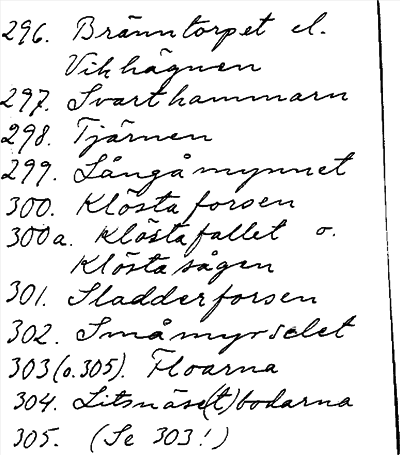 296. Bränntorpet el.
Vikhägnen
297. Svarthammarn
298. Tjärnen
299. Långåmynnet
300. Klösta forsen
300a. Klöstafallet o.
Klösta sågen
301. Sladderforsen
302. Småmyrselet
303 (o. 305). Floarna
304. Litsnäse(t)bodarna
305. (Se 303!)